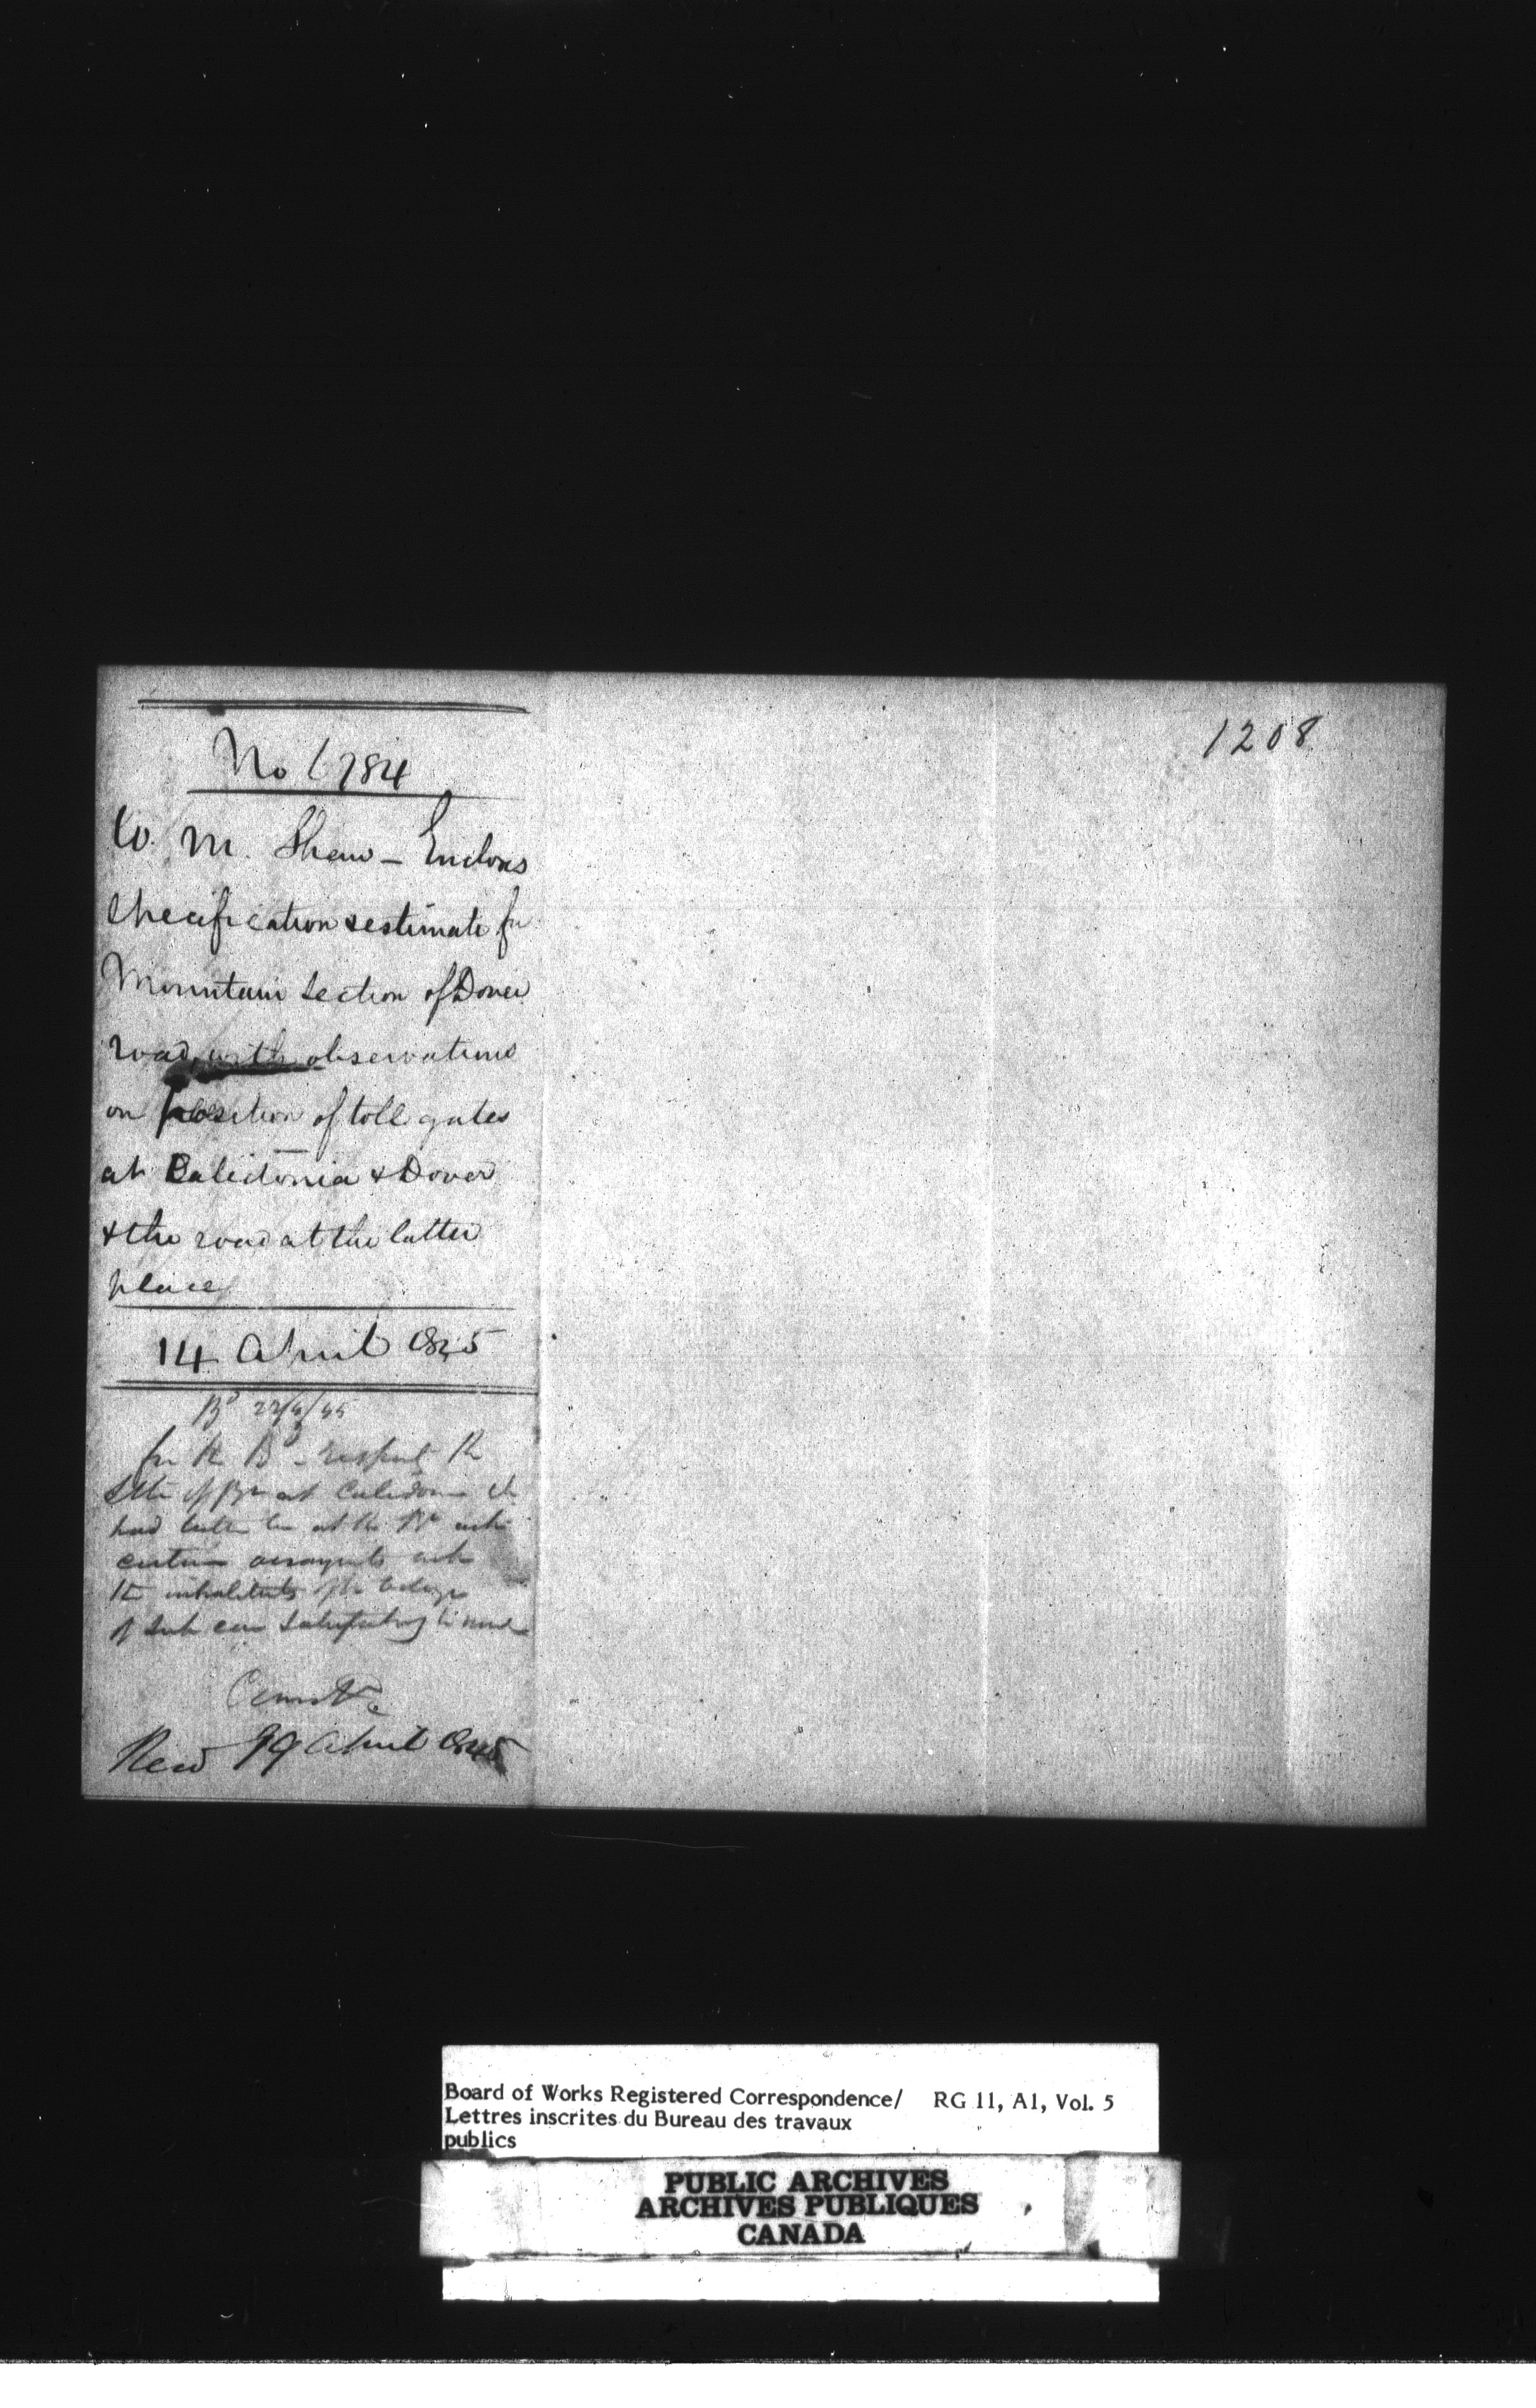 1208
No 1784
W. M. Shaw – Encloses
specification & estimate for
Mountain Section of Dover
road, with observations
on position of toll gates
at Caledonia & Dover
& the road at the latter
place
14 April 1845
Bd 22/4/45
for the Bd – respect the
at Caledonia
had better be at the
certain with
the inhabitants of the
if such can satisfactory be made
Recd 19 April 1845
Board of Works Registered Correspondence/ RG 11, A1, Vol. 5
Lettres inscrites du Bureau des travaux
publics
PUBLIC ARCHIVES
ARCHIVES PUBLIQUES
CANADA